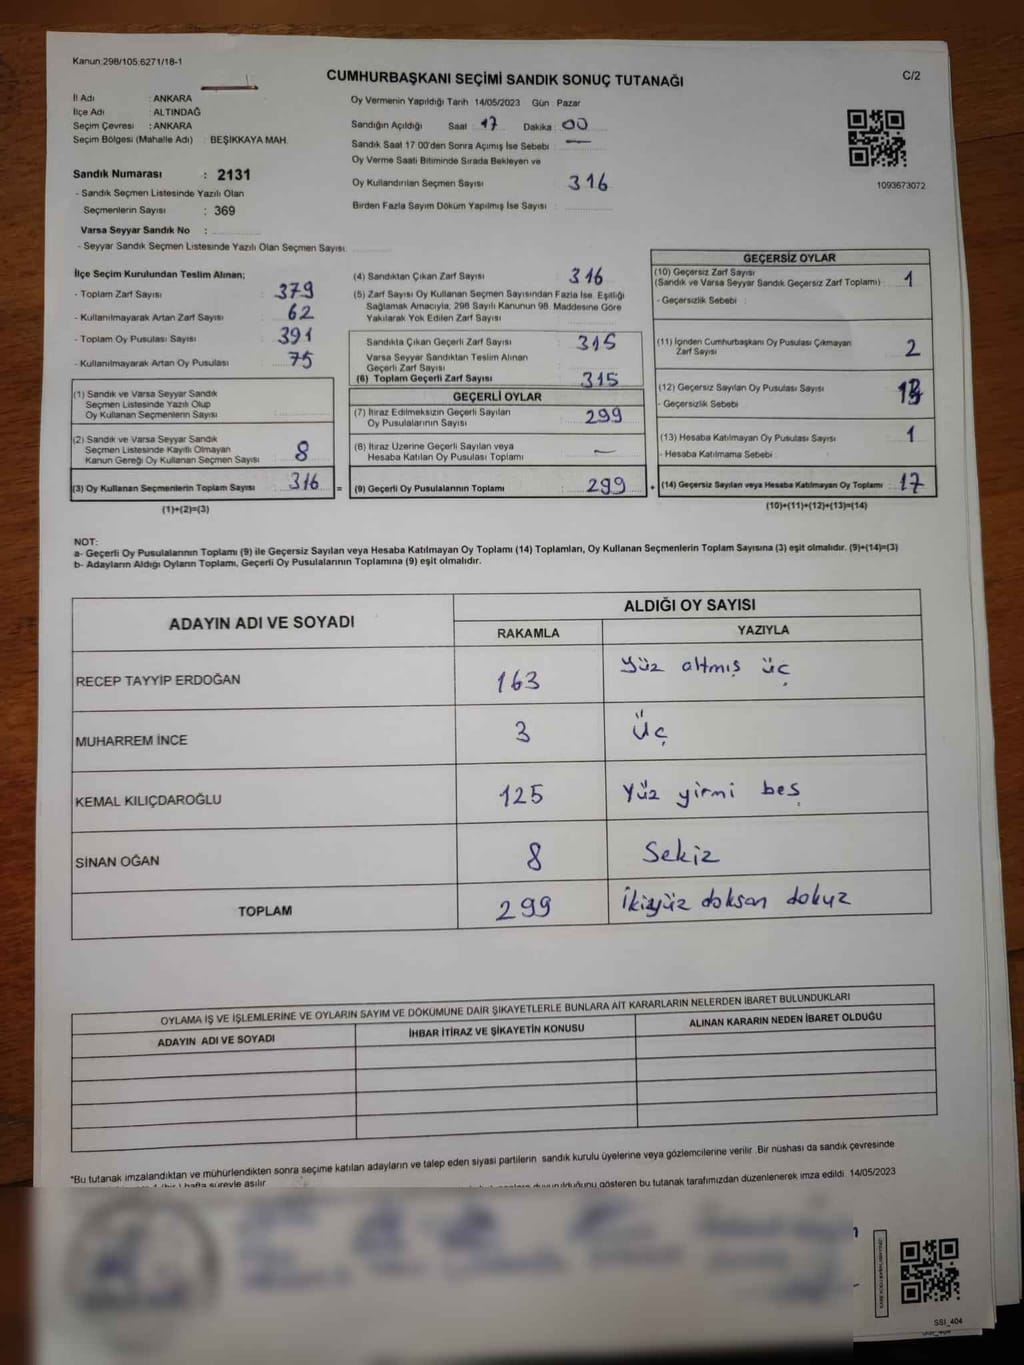 Kanun:298/105:6271/18-1
CUMHURBAŞKANI SEÇİMİ SANDIK SONUÇ TUTANAĞI
C/2
İl Adı : ANKARA
İlçe Adı : ALTINDAĞ
Seçim Çevresi : ANKARA
Seçim Bölgesi (Mahalle Adı) : BEŞİKKAYA MAH.
Sandık Numarası : 2131
- Sandık Seçmen Listesinde Yazılı Olan
Seçmenlerin Sayısı : 369
Varsa Seyyar Sandık No :
- Seyyar Sandık Seçmen Listesinde Yazılı Olan Seçmen Sayısı:
Oy Vermenin Yapıldığı Tarih 14/05/2023 Gün Pazar
Sandığın Açıldığı Saat 17 Dakika : 00
Sandık Saat 17 00'den Sonra Açımış İse Sebebi : —
Oy Verme Saati Bitiminde Sırada Bekleyen ve
Oy Kullandırılan Seçmen Sayısı 316
Birden Fazla Sayım Döküm Yapılmış İse Sayısı :
1093673072
İlçe Seçim Kurulundan Teslim Alınan;
- Toplam Zarf Sayısı : 379
- Kullanılmayarak Artan Zarf Sayısı : 62
- Toplam Oy Pusulası Sayısı : 391
- Kullanılmayarak Artan Oy Pusulası : 75
(1) Sandık ve Varsa Seyyar Sandık
Seçmen Listesinde Yazılı Olup
Oy Kullanan Seçmenlerin Sayısı
(2) Sandık ve Varsa Seyyar Sandık
Seçmen Listesinde Kayıtlı Olmayan
Kanun Gereği Oy Kullanan Seçmen Sayısı 8
(3) Oy Kullanan Seçmenlerin Toplam Sayısı 316 =
(1)+(2)=(3)
(4) Sandıktan Çıkan Zarf Sayısı 316
(5) Zarf Sayısı Oy Kullanan Seçmen Sayısından Fazla İse, Eşitliği
Sağlamak Amacıyla, 298 Sayılı Kanunun 98. Maddesine Göre
Yakılarak Yok Edilen Zarf Sayısı :
Sandıkta Çıkan Geçerli Zarf Sayısı 315
Varsa Seyyar Sandıktan Teslim Alınan
Geçerli Zarf Sayısı
(6) Toplam Geçerli Zarf Sayısı 315
GEÇERLİ OYLAR
(7) İtiraz Edilmeksizin Geçerli Sayılan
Oy Pusulalarının Sayısı : 299
(8) İtiraz Üzerine Geçerli Sayılan veya
Hesaba Katılan Oy Pusulası Toplamı : —
(9) Geçerli Oy Pusulalarının Toplamı : 299 +
GEÇERSİZ OYLAR
(10) Geçersiz Zarf Sayısı
(Sandık ve Varsa Seyyar Sandık Geçersiz Zarf Toplamı) : 1
- Geçersizlik Sebebi :
(11) İçinden Cumhurbaşkanı Oy Pusulası Çıkmayan
Zarf Sayısı 2
(12) Geçersiz Sayılan Oy Pusulası Sayısı : 13
- Geçersizlik Sebebi
(13) Hesaba Katılmayan Oy Pusulası Sayısı 1
- Hesaba Katılmama Sebebi :
(14) Geçersiz Sayılan veya Hesaba Katılmayan Oy Toplamı 17
(10)+(11)+(12)+(13)=(14)
NOT:
a- Geçerli Oy Pusulalarının Toplamı (9) ile Geçersiz Sayılan veya Hesaba Katılmayan Oy Toplamı (14) Toplamları, Oy Kullanan Seçmenlerin Toplam Sayısına (3) eşit olmalıdır. (9)+(14)=(3)
b- Adayların Aldığı Oyların Toplamı, Geçerli Oy Pusulalarının Toplamına (9) eşit olmalıdır.
ADAYIN ADI VE SOYADI
ALDIĞI OY SAYISI
RAKAMLA YAZIYLA
RECEP TAYYİP ERDOĞAN 163 Yüz altmış üç
MUHARREM İNCE 3 üç
KEMAL KILIÇDAROĞLU 125 Yüz yirmi beş
SİNAN OĞAN 8 Sekiz
TOPLAM 299 İkiyüz doksan dokuz
OYLAMA İŞ VE İŞLEMLERİNE VE OYLARIN SAYIM VE DÖKÜMÜNE DAİR ŞİKAYETLERLE BUNLARA AİT KARARLARIN NELERDEN İBARET BULUNDUKLARI
ADAYIN ADI VE SOYADI İHBAR İTİRAZ VE ŞİKAYETİN KONUSU ALINAN KARARIN NEDEN İBARET OLDUĞU
*Bu tutanak imzalandıktan ve mühürlendikten sonra seçime katılan adayların ve talep eden siyasi partilerin sandık kurulu üyelerine veya gözlemcilerine verilir. Bir nüshası da sandık çevresinde
hafta süreyle asılır
duyurulduğunu gösteren bu tutanak tarafımızdan düzenlenerek imza edildi. 14/05/2023
SSI_404